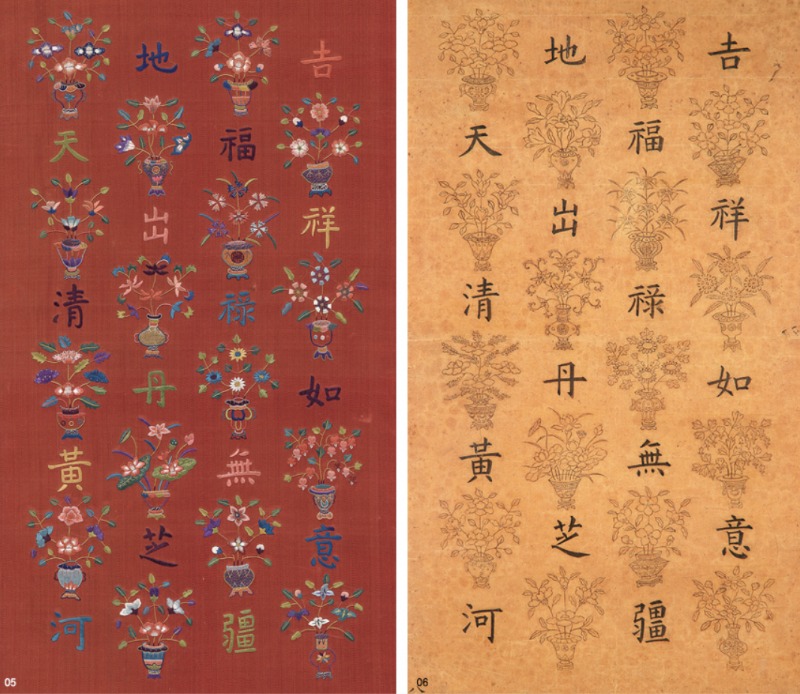 吉祥如意
福禄無疆
地出丹芝
天清黃河
05
吉祥如意
福禄無疆
地出丹芝
天清黃河
06